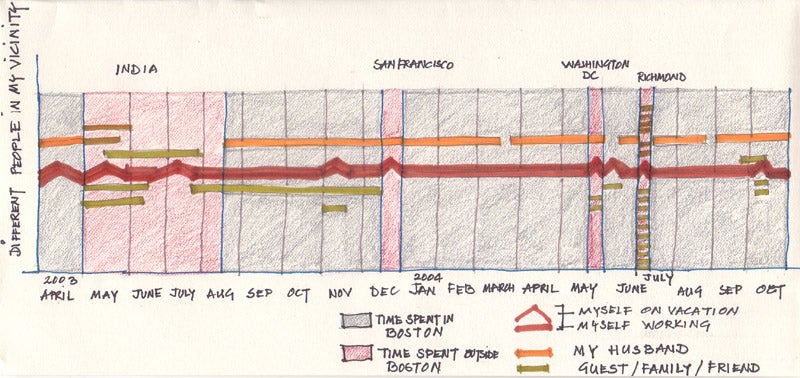 DIFFERENT PEOPLE IN MY VICINITY
INDIA
SAN FRANCISCO
WASHINGTON
DC
RICHMOND
2003
2004
APRIL MAY JUNE JULY AUG SEP OCT NOV DEC JAN FEB MARCH APRIL MAY JUNE JULY AUG SEP OCT
TIME SPENT IN
BOSTON
TIME SPENT OUTSIDE
BOSTON
MYSELF ON VACATION
MYSELF WORKING
MY HUSBAND
GUEST/FAMILY/FRIEND